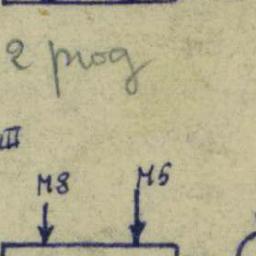 2 prog
III
M8 M6